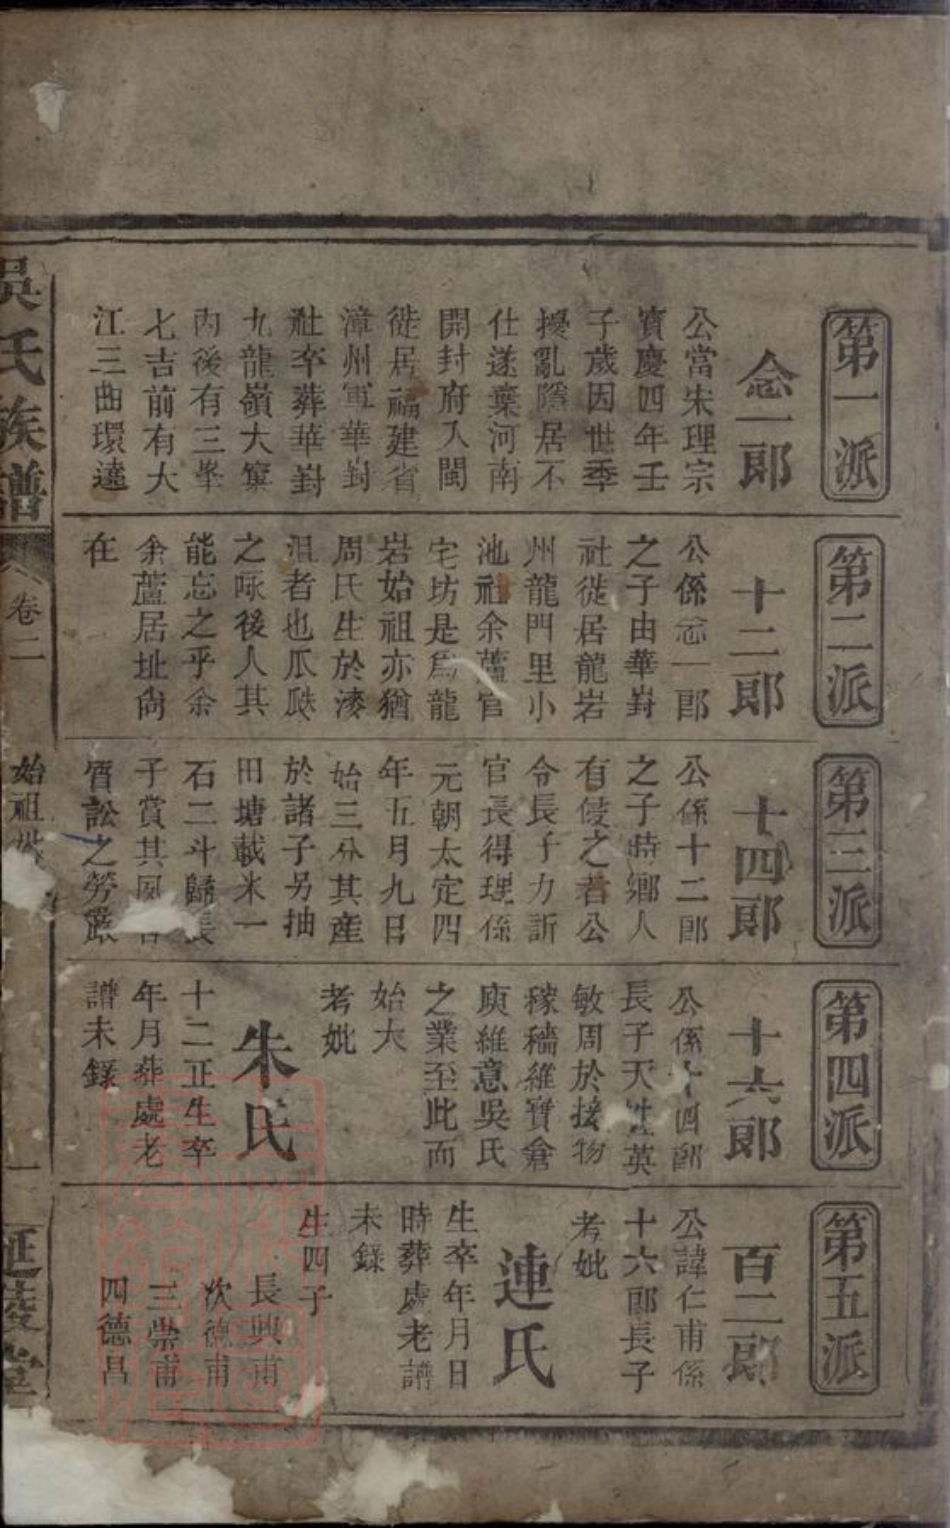 第一派
念一郎
公當宋理宗
寶慶四年壬
子歲因世季
擾亂隱居不
仕遂棄河南
開封府入閩
徙居福建省
漳州軍華封
社卒葬華封
九龍嶺大窠
內後有三峯
七吉前有大
江三曲環遶
第二派
十二郎
公係念一郎
之子由華封
社徙居龍岩
州龍門里小
池社余蘆官
宅坊是爲龍
岩始祖亦猶
周氏生於漆
沮者也瓜瓞
之咏後人其
能忘之乎余
余蘆居址尙
在
第三派
十四郎
公係十二郎
之子時鄉人
有侵之者公
令長子力訴
官長得理係
元朝太定四
年五月九日
始三分其產
於諸子另抽
田塘載米一
石二斗歸長
子賞其
訟之勞
第四派
十六郎
公係十四郎
長子天性英
敏周於接物
稼穡維寶倉
庾維意吳氏
之業至此而
始大
考妣
朱氏
十二正生卒
年月葬處老
譜未錄
第五派
百二郎
公諱仁甫係
十六郎長子
考妣
連氏
生卒年月日
時葬處老譜
未錄
生四子
長興甫
次德甫
三崇甫
四德昌
吳氏族譜
卷二
始祖
一
延陵堂